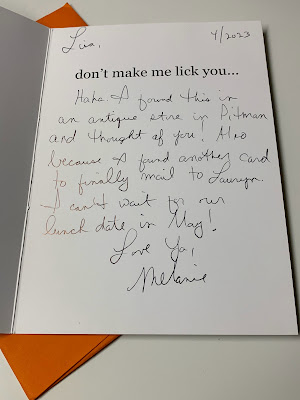 Lisa,
4/2023
don't make me lick you...
Haha. I found this in
an antique store in Pitman
and thought of you! Also
because I found another card
to finally mail to Lauryn.
I can't wait for our
lunch date in May!
Love Ya,
Melanie